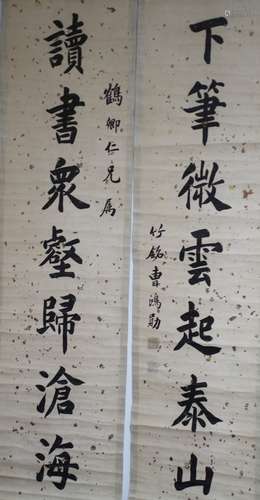 下筆微雲起泰山
竹銘曹鴻勛
鶴卿仁兄属
讀書衆壑歸滄海